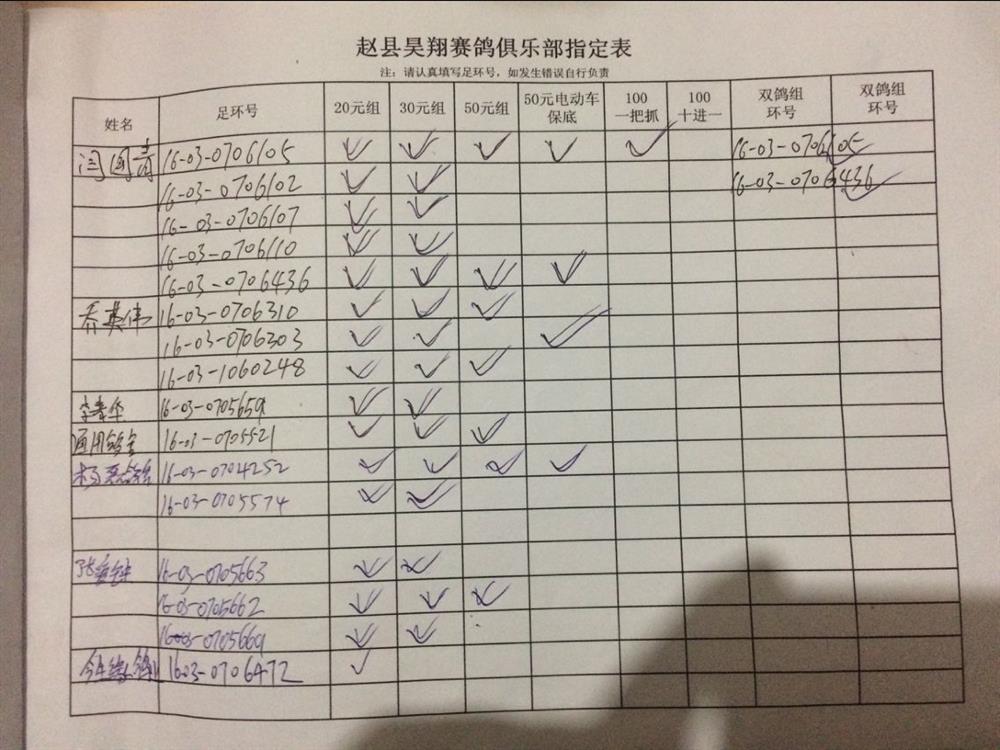 赵县昊翔赛鸽俱乐部指定表
注：请认真填写足环号，如发生错误自行负责
姓名 足环号 20元组 30元组 50元组 50元电动车保底 100一把抓 100十进一 双鸽组环号 双鸽组环号
闫国青 16-03-0706105 ✓ ✓ ✓ ✓ ✓ 16-03-0706105 ✓
16-03-0706102 ✓ ✓ 16-03-0706436 ✓
16-03-0706107 ✓ ✓
16-03-0706110 ✓ ✓
16-03-0706436 ✓ ✓ ✓ ✓
乔英伟 16-03-0706310 ✓ ✓ ✓
16-03-0706303 ✓ ✓ ✓
16-03-1060248 ✓ ✓ ✓
李春华 16-03-0705659 ✓ ✓
通用鸽舍 16-03-0705521 ✓ ✓ ✓
16-03-0704252 ✓ ✓ ✓ ✓
16-03-0705574 ✓ ✓
16-03-0705663 ✓ ✓
16-03-0705662 ✓ ✓ ✓
16-03-0705669 ✓ ✓
1603-0706472 ✓